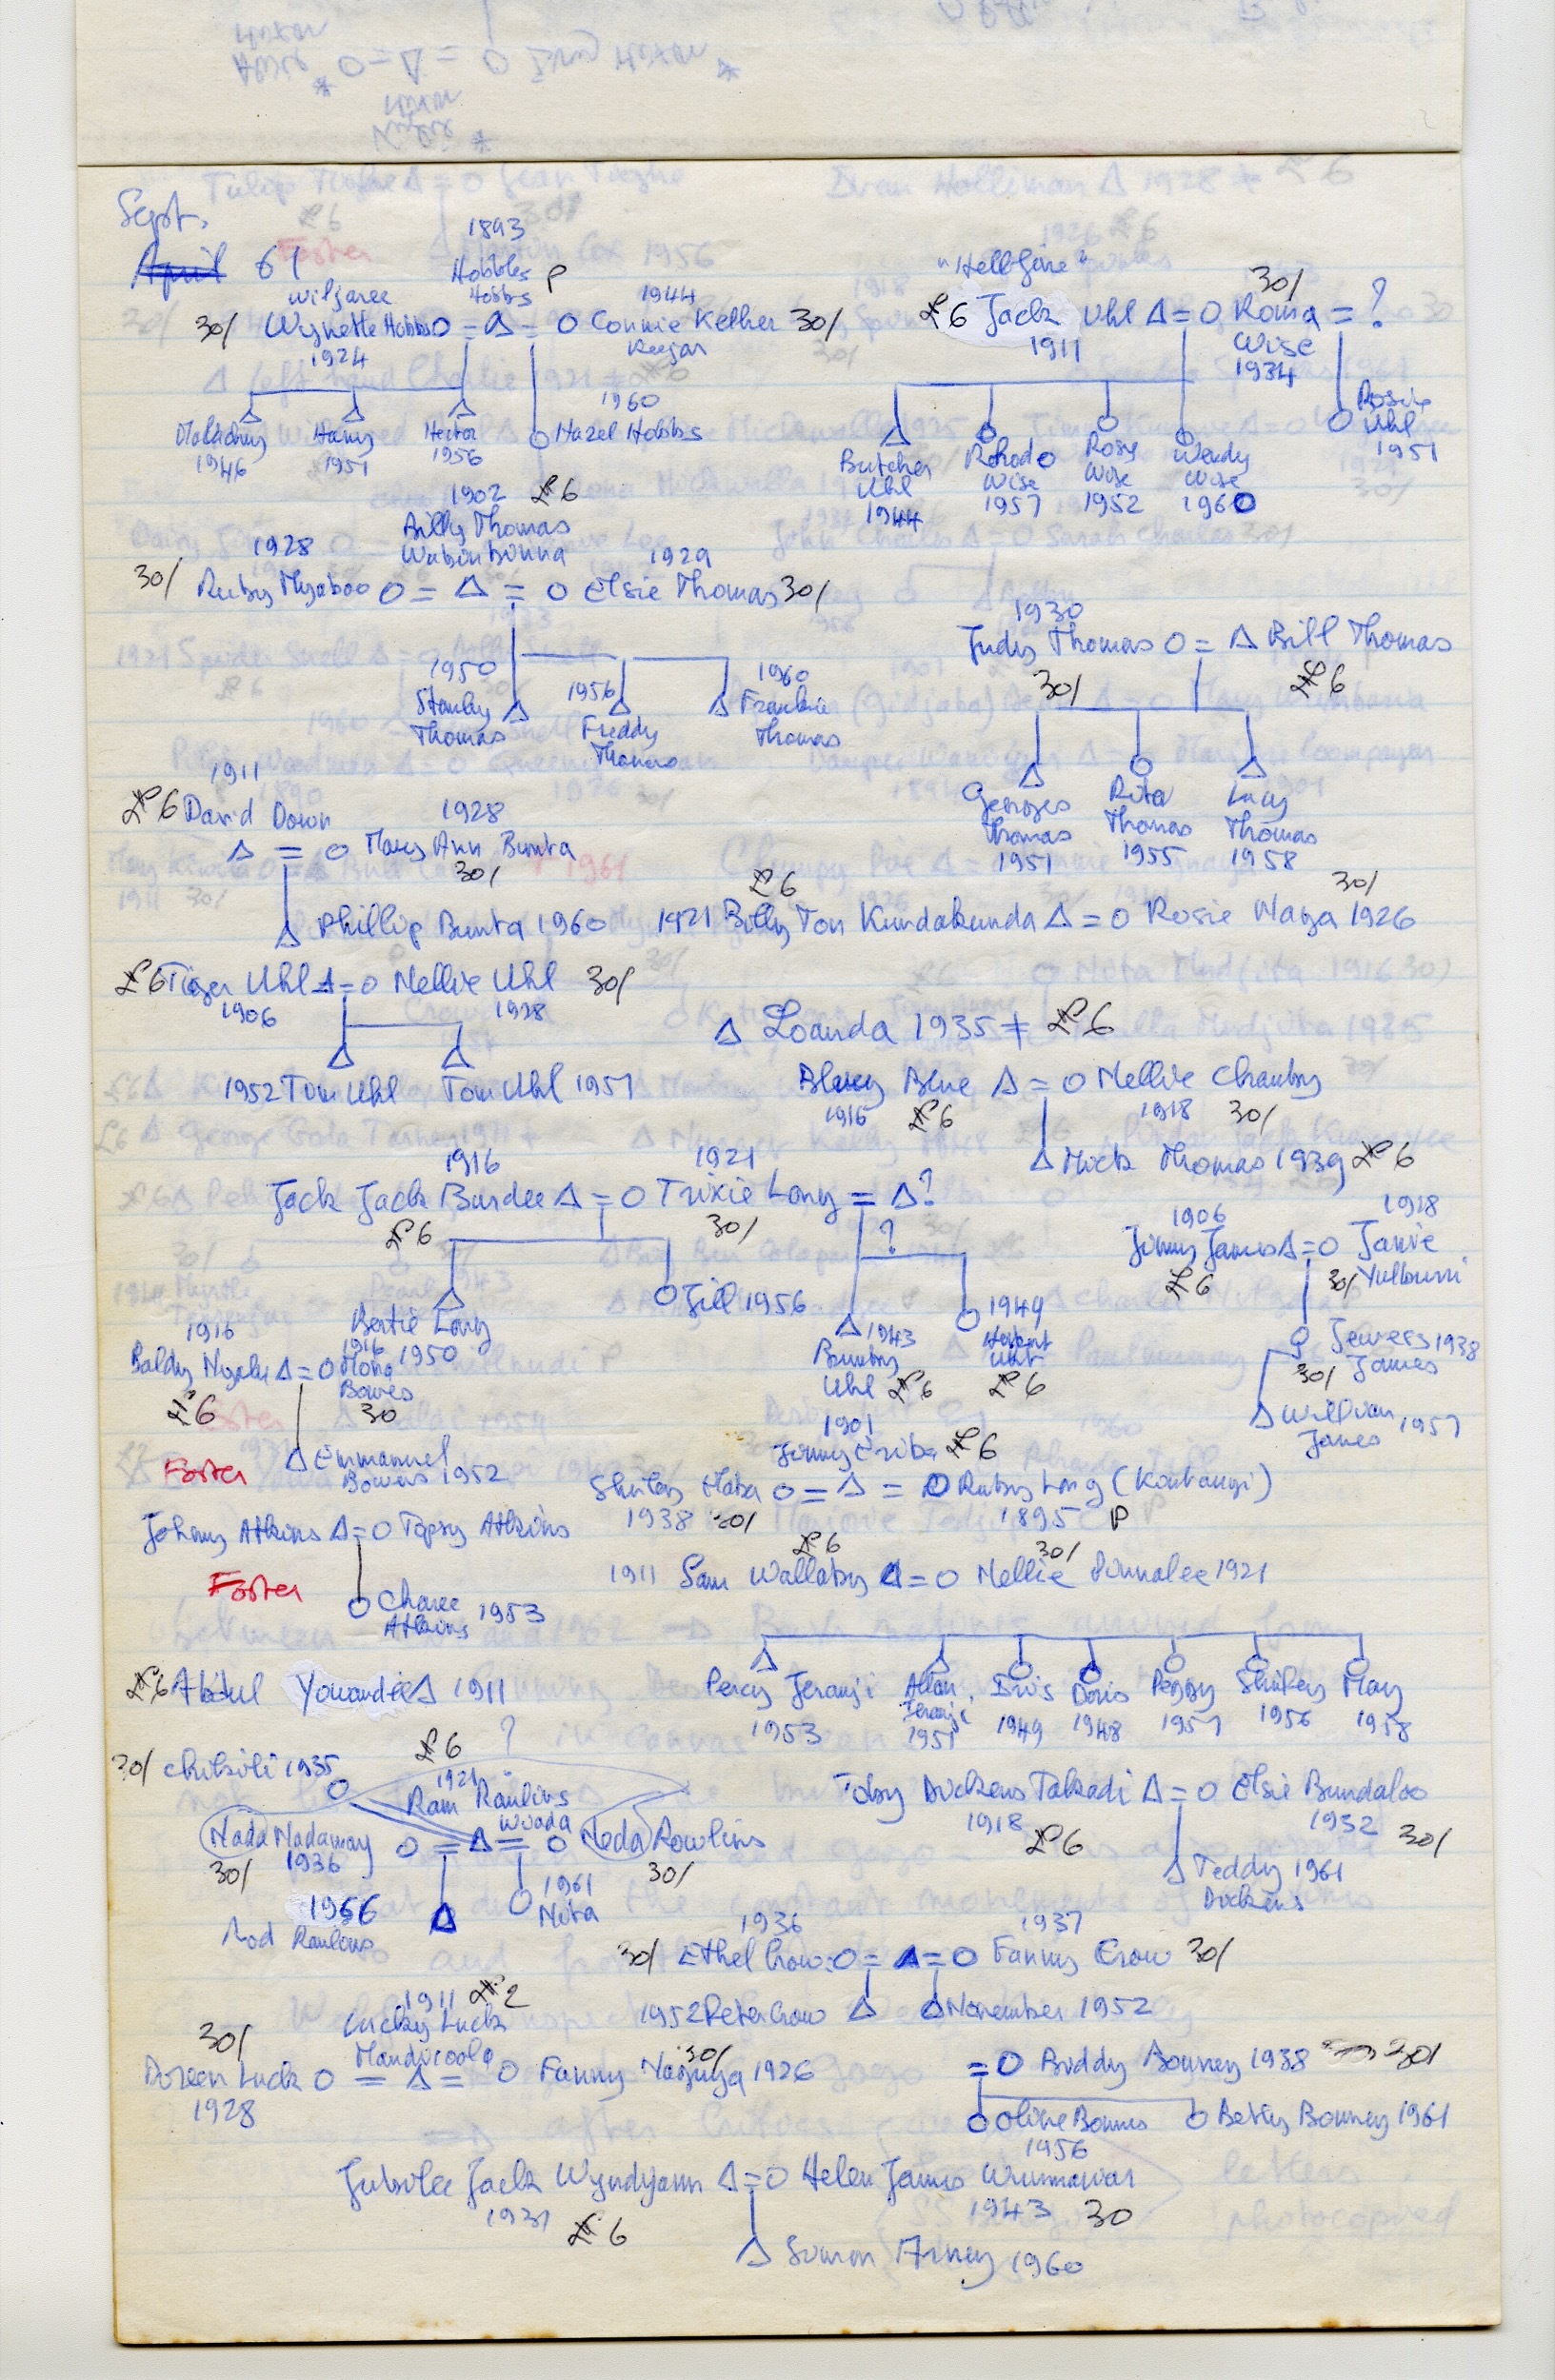 Sept.
April 61
1893
Hobbles
Hobbs P
Wilfaree
30/ Wynette Hobbs O = Δ = O Connie Kelher 30/
1924
1944
Keejar
Harry
1946 1951
Hector
1956
1960
Hazel Hobbs
"Hellfire"
£6 Jack Uhl Δ = O Roma = ?
1911
30/
Wise
1934
Butcher
Uhl
1944
Rhoda
Wise
1957
Rosy
Wise
1952
Wendy
Wise
1960
Rosie
Uhl
1951
1902 £6
Billy Thomas
1928
1929
30/ Ruby Myaboo O = Δ = O Elsie Thomas 30/
1950
Stanley
Thomas
1956
Freddy
Thomas
1960
Frankie
Thomas
1930
Judy Thomas O = Δ Bill Thomas
30/ £6
Georges
Thomas
1951
Rita
Thomas
1955
Lacy
Thomas
1958
1911
£6 David Down
1928
Δ = O Mary Ann Bunta
30/
Δ Phillip Bunta 1960
£6 30/
1921 Billy Ton Kundakunda Δ = O Rosie Waya 1926
£6 Tiger Uhl Δ = O Nellie Uhl 30/
1906 1928
1952 Tim Uhl Tom Uhl 1957
Δ Loanda 1935 ≠ £6
Bluey Blue Δ = O Nellie Chamby
1916 £6 1918 30/
Δ Mick Thomas 1939 £6
1916 1921
Jack Jack Burdee Δ = O Trixie Long = Δ?
£6 30/ ?
Bertie Long
1950
O Jill 1956
Δ 1943
Bumby
Uhl £6
1949
Herbert
Uhl
£6
1906 1918
Jimmy James Δ = O Janie
£6 30/ Yulburri
Jewess 1938
30/ James
Δ William 1957
James
1916 1916
Baldy Δ = O Mona
£6
Bowes
30
Foster Δ Emmanuel
Bowes 1952
1901
Jimmy £6
Shirley O = Δ = O Ruby Long (Kontangi)
1938 30/ 1895 P
Johnny Atkins Δ = O Topsy Atkins
Foster
O Charee
Atkins 1953
£6 30/
1911 Sam Wallaby Δ = O Nellie Pinnalee 1921
Percy Jeranji
1953
Allan
Jeranji
1951
Iris
1949
Doris
1948
Peggy
1951
Shirley
1956
May
1958
£6 Abdul Youandie Δ 1911
30/ Chibili 1935
£6
?
1921
Ram Rawlins
Wuada
Nada Nadaway O = Δ = O Neda Rowlins
30/ 1936 30/
1956
Rod Rawlins
1961
Nita
Toby Dickens Takadi Δ = O Elsie Bundaloo
1918 £6 1932 30/
Δ Teddy 1961
Dickens
1936 1937
30/ Ethel Crow O = Δ = O Fanny Crow 30/
1952 Peter Crow Δ Δ November 1952
1911 £2
Lucky Luck
30/ Mandicoola 30/
Doreen Luck O = Δ = O Fanny Naguya 1926
1928
= O Biddy Bonney 1938 30/
O Olive Bonney
1956
O Betty Bonney 1961
Jubilee Jack Wyndyann Δ = O Helen James Wunmawar
1931 £6 1943 30
Δ Simon Arney 1960